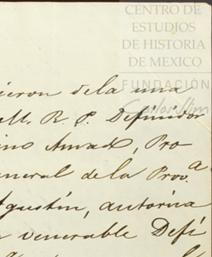 CENTRO DE
ESTUDIOS
DE HISTORIA
DE MEXICO
FUNDACIÓN
Carlos Slim
ieron de la una
M. R. P. Definidor
ino Amad, Pro
eneral de la Prov.ª
Agustin, autoriza
venerable Defi